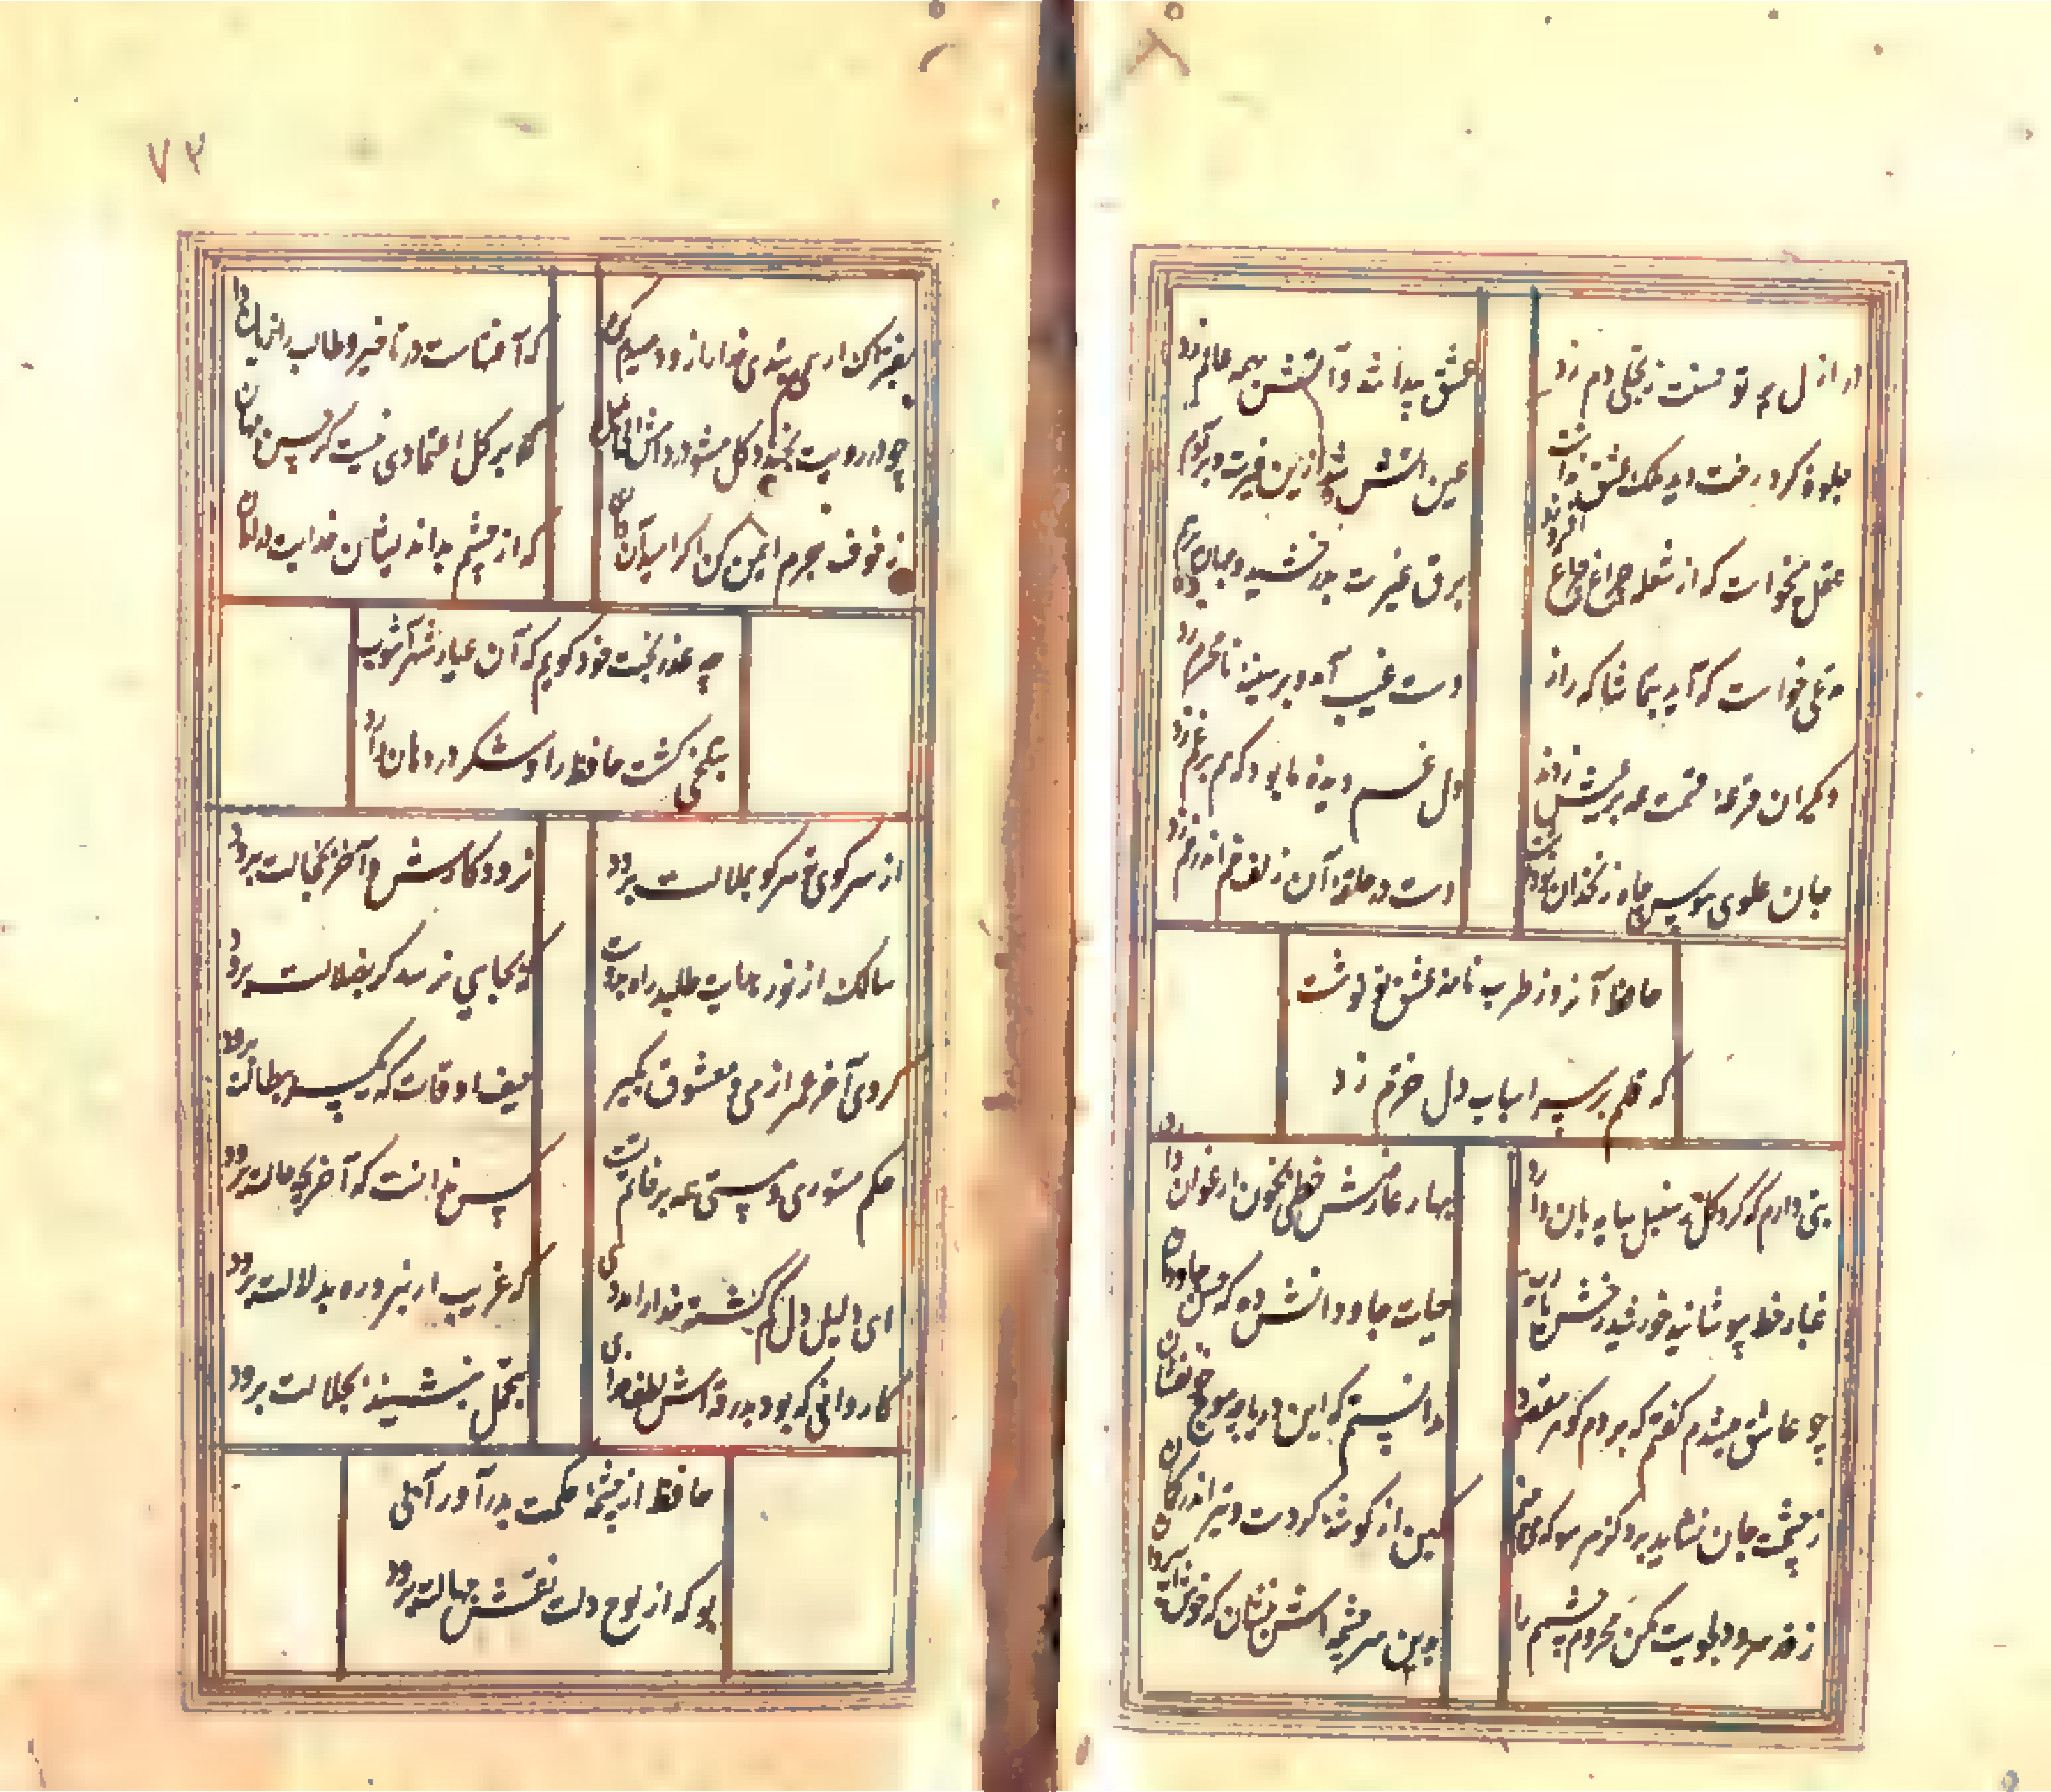 در ازل پرتو حسنت ز تجلی دم زد
عشق پیدا شد و آتش بهمه عالم زد
جلوهٔ کرد رخت دید ملک عشق نداشت
عین آتش شد ازین غیرت و بر آدم زد
عقل میخواست که از آن شعله چراغ افروزد
برق غیرت بدرخشید و جهان برهم زد
مدعی خواست که آید بتماشاکه راز
دست غیب آمد و بر سینهٔ نامحرم زد
دیگران قرعهٔ قسمت همه بر عیش زدند
دل غمدیدهٔ ما بود که هم بر غم زد
جان علوی هوس چاه زنخدان تو داشت
دست در حلقهٔ آن زلف خم اندر خم زد
حافظ آنروز طرب نامهٔ عشق تو نوشت
که قلم بر سر اسباب دل خرم زد
بتی دارم که گرد گل ز سنبل سایه بان دارد
بهار عارضش خطی بخون ارغوان دارد
غبار خط بپوشانید خورشید رخش یا رب
حیات جاودانش ده که حسن جاودان
چو عاشق میشدم گفتم که بردم گوهر مقصود
ندانستم که این دریا چه موج خونفشان
ز چشمت جان نشاید برد کز هر سو که می بینم
کمین از گوشهٔ کردست و تیر اندر کمان
ز قد سرو دلجویت مکن محروم چشمم را
بدین سرچشمه اش بنشان که خوش آب روان
بفتراک ار همی بندی خدا را زود صیدم کن
که آفتهاست در تاخیر و طالب را زیان دارد
چو در رویت بخندد گل مشو در دامش ای بلبل
که بر گل اعتمادی نیست گر حسن جهان
ز خوف هجرم ایمن کن اگر امید آن
که از چشم بد اندیشان خدایت در امان
چه عذر بخت خود گویم که آن عیار شهرآشوب
بتلخی کشت حافظ را و شکر در دهان دارد
از سر کوی تو هر کو بملالت برود
نرود کارش و آخر بخجالت برود
سالک از نور هدایت طلبد راه بدوست
که بجایی نرسد گر بضلالت برود
گروی آخر عمر از می و معشوق بگیر
حیف اوقات که یکسر ببطالت برود
حکم مستوری و مستی همه بر خاتمتست
کس ندانست که آخر بچه حالت برود
ای دلیل دل گم گشته خدا را مددی
که غریب ار نبرد ره بدلالت برود
کاروانی که بود بدرقه اش لطف خدای
بتجمل بنشیند بجلالت برود
حافظ از چشمهٔ حکمت بدر آور آبی
بو که از لوح دلت نقش جهالت برود